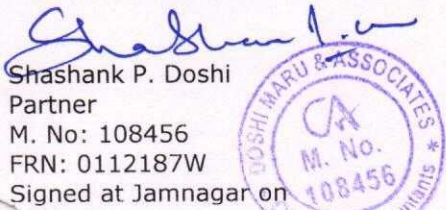 Shashank P. Doshi
Partner
M. No: 108456
FRN: 0112187W
Signed at Jamnagar on
DOSHI MARU & ASSOCIATES
CA
M. No.
108456